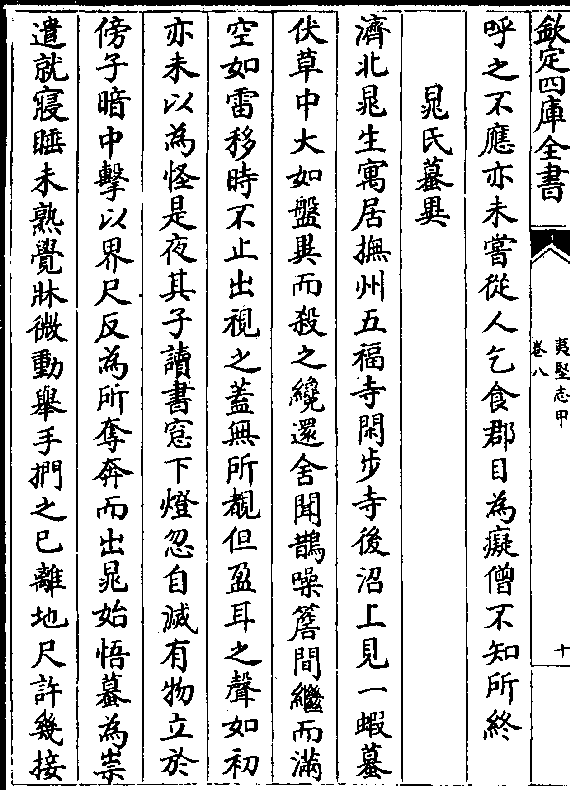 欽定四庫全書
夷堅志甲
卷八
十
呼之不應亦未嘗從人乞食郡目為癡僧不知所終
晁氏蟇異
濟北晁生寓居撫州五福寺閑步寺後沼上見一蝦蟇
伏草中大如盤異而殺之纔還舍聞鵲噪簷間繼而滿
空如雷移時不止出視之蓋無所覩但盈耳之聲如初
亦未以為怪是夜其子讀書窓下燈忽自滅有物立於
傍子暗中擊以界尺反為所奪奔而出晁始悟蟇為祟
遣就寢睡未熟覺牀微動舉手捫之已離地尺許幾接